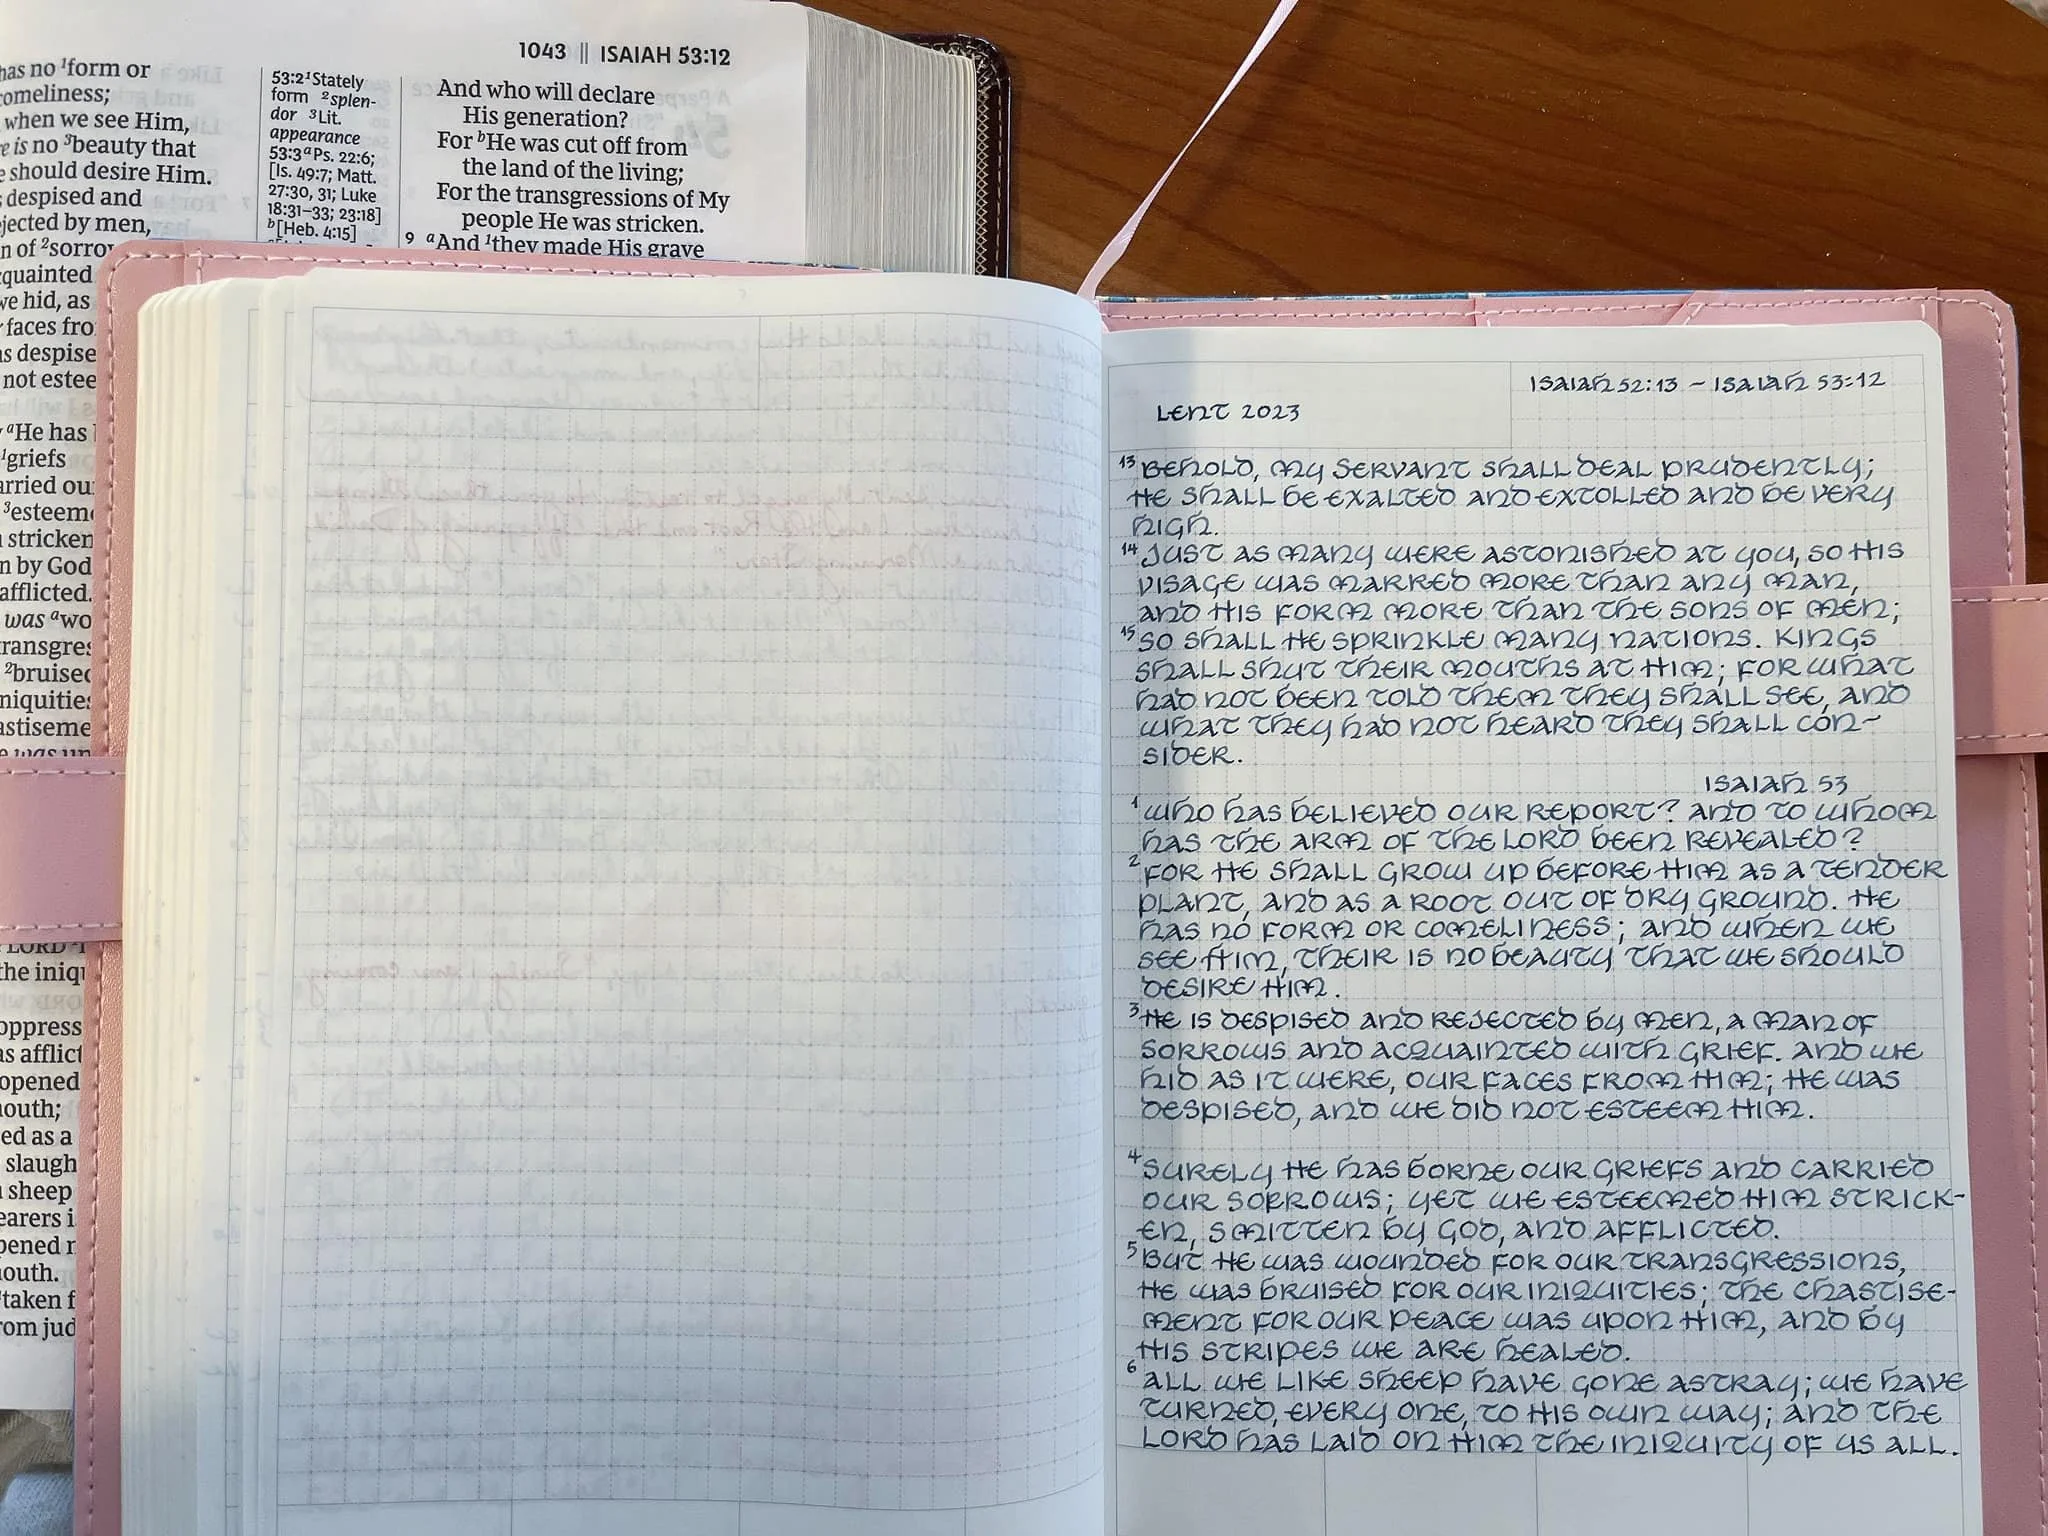 1043 || ISAIAH 53:12
has no ¹form or
comeliness;
when we see Him,
is no ³beauty that
should desire Him.
despised and
by men,
of ²sorro
quainted
we hid, as
faces fro
despise
not estee
ᵃHe has
¹griefs
ou
³esteem
stricken
by God
afflicted.
was ᵃwo
transgres
²bruised
niquities
astiseme
was un
LORD
the iniq
oppress
as afflict
opened
outh;
ed as a
slaugh
sheep
earers i
pened n
outh.
taken f
rom jud
53:2 ¹Stately
form ²splen-
dor ³Lit.
appearance
53:3 ᵃPs. 22:6;
[Is. 49:7; Matt.
27:30, 31; Luke
18:31–33; 23:18]
ᵇ[Heb. 4:15]
And who will declare
His generation?
For ᵇHe was cut off from
the land of the living;
For the transgressions of My
people He was stricken.
9 ᵃAnd ¹they made His grave
ISAIAH 52:13 – ISAIAH 53:12
LENT 2023
13 BEHOLD, MY SERVANT SHALL DEAL PRUDENTLY;
HE SHALL BE EXALTED AND EXTOLLED AND BE VERY
HIGH.
14 JUST AS MANY WERE ASTONISHED AT YOU, SO HIS
VISAGE WAS MARRED MORE THAN ANY MAN,
AND HIS FORM MORE THAN THE SONS OF MEN;
15 SO SHALL HE SPRINKLE MANY NATIONS. KINGS
SHALL SHUT THEIR MOUTHS AT HIM; FOR WHAT
HAD NOT BEEN TOLD THEM THEY SHALL SEE, AND
WHAT THEY HAD NOT HEARD THEY SHALL CON-
SIDER.
ISAIAH 53
1 WHO HAS BELIEVED OUR REPORT? AND TO WHOM
HAS THE ARM OF THE LORD BEEN REVEALED?
2 FOR HE SHALL GROW UP BEFORE HIM AS A TENDER
PLANT, AND AS A ROOT OUT OF DRY GROUND. HE
HAS NO FORM OR COMELINESS; AND WHEN WE
SEE HIM, THEIR IS NO BEAUTY THAT WE SHOULD
DESIRE HIM.
3 HE IS DESPISED AND REJECTED BY MEN, A MAN OF
SORROWS AND ACQUAINTED WITH GRIEF. AND WE
HID AS IT WERE, OUR FACES FROM HIM; HE WAS
DESPISED, AND WE DID NOT ESTEEM HIM.
4 SURELY HE HAS BORNE OUR GRIEFS AND CARRIED
OUR SORROWS; YET WE ESTEEMED HIM STRICK-
EN, SMITTEN BY GOD, AND AFFLICTED.
5 BUT HE WAS WOUNDED FOR OUR TRANSGRESSIONS,
HE WAS BRUISED FOR OUR INIQUITIES; THE CHASTISE-
MENT FOR OUR PEACE WAS UPON HIM, AND BY
HIS STRIPES WE ARE HEALED.
6 ALL WE LIKE SHEEP HAVE GONE ASTRAY; WE HAVE
TURNED, EVERY ONE, TO HIS OWN WAY; AND THE
LORD HAS LAID ON HIM THE INIQUITY OF US ALL.